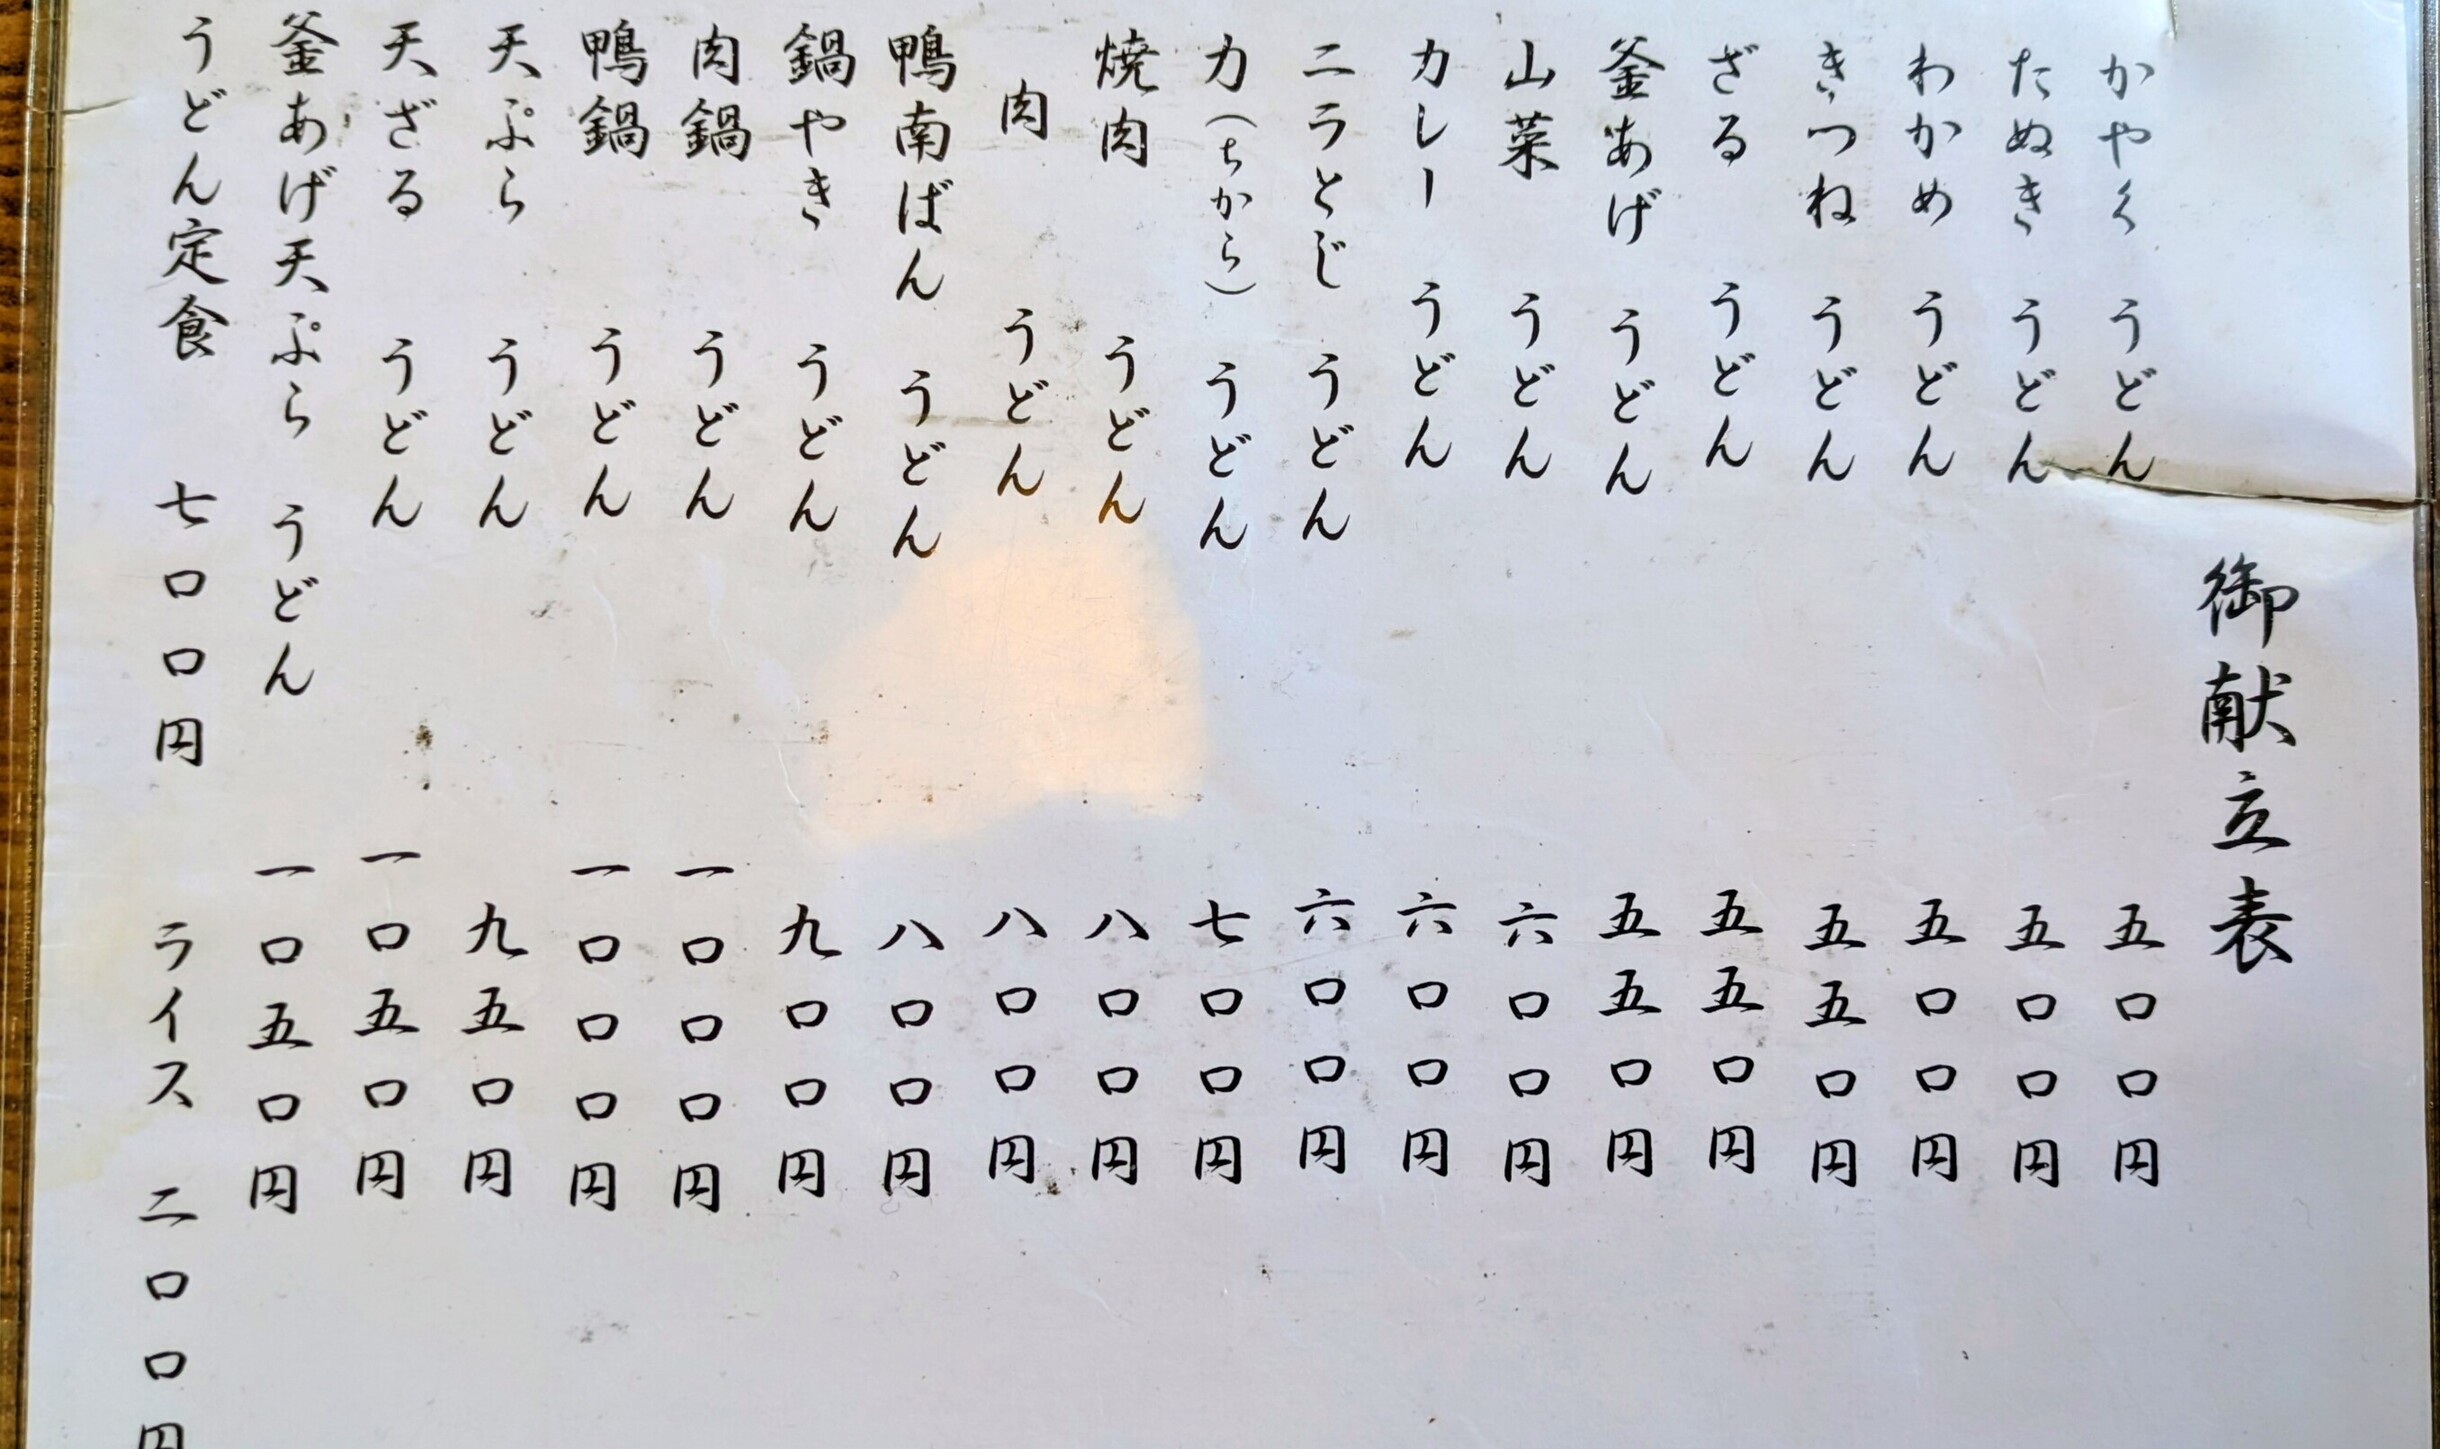 御献立表
かやく うどん 五〇〇円
たぬき うどん 五〇〇円
わかめ うどん 五〇〇円
きつね うどん 五五〇円
ざる うどん 五五〇円
釜あげ うどん 五五〇円
山菜 うどん 六〇〇円
カレー うどん 六〇〇円
ニラとじ うどん 六〇〇円
力(ちから) うどん 七〇〇円
焼肉 うどん 八〇〇円
肉 うどん 八〇〇円
鴨南ばん うどん 八〇〇円
鍋やき うどん 九〇〇円
肉鍋 うどん 一〇〇〇円
鴨鍋 うどん 一〇〇〇円
天ぷら うどん 九五〇円
天ざる うどん 一〇五〇円
釜あげ天ぷら うどん 一〇五〇円
うどん定食 七〇〇円 ライス 二〇〇円